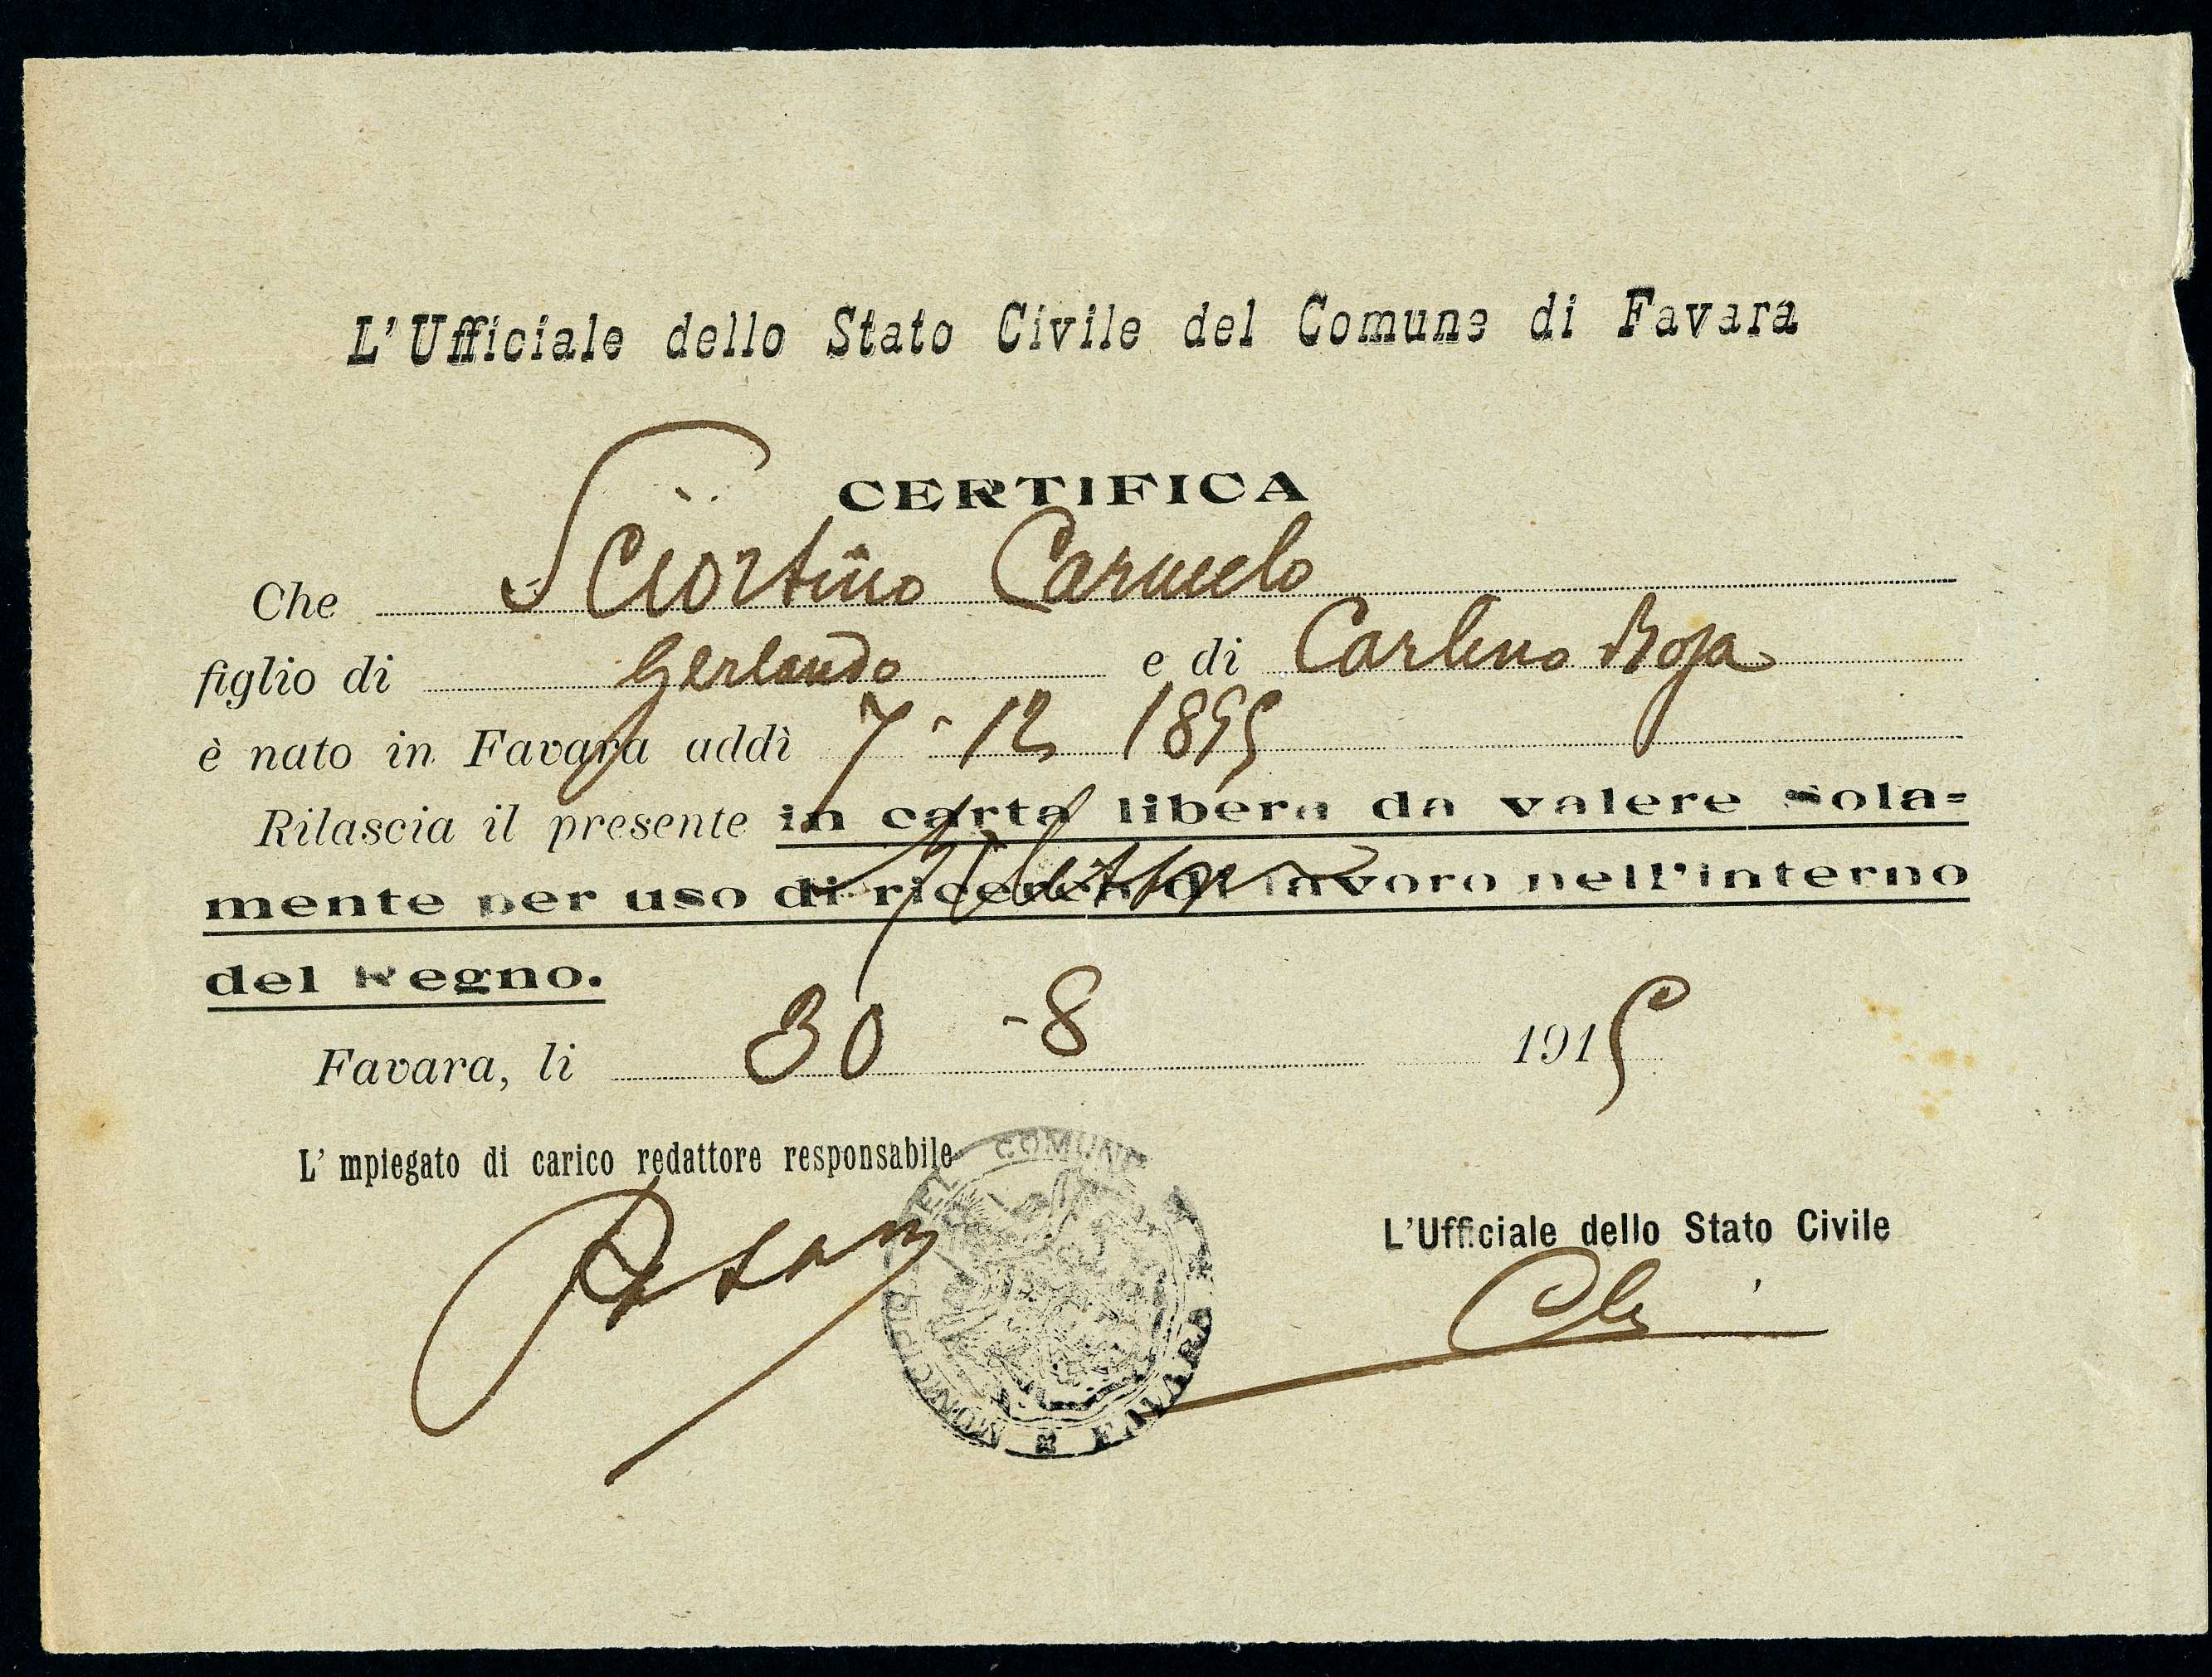 L'Ufficiale dello Stato Civile del Comune di Favara
CERTIFICA
Che Sciortino Carmelo
figlio di Gerlando e di Carlino Rosa
è nato in Favara addì 7-12 1895
Rilascia il presente in carta libera da valere sola=
mente per uso di ricerca di lavoro nell'interno
del Regno.
Favara, li 30 -8 1915
L' mpiegato di carico redattore responsabile
MUNICIPIO DEL COMUNE FAVARA
L'Ufficiale dello Stato Civile